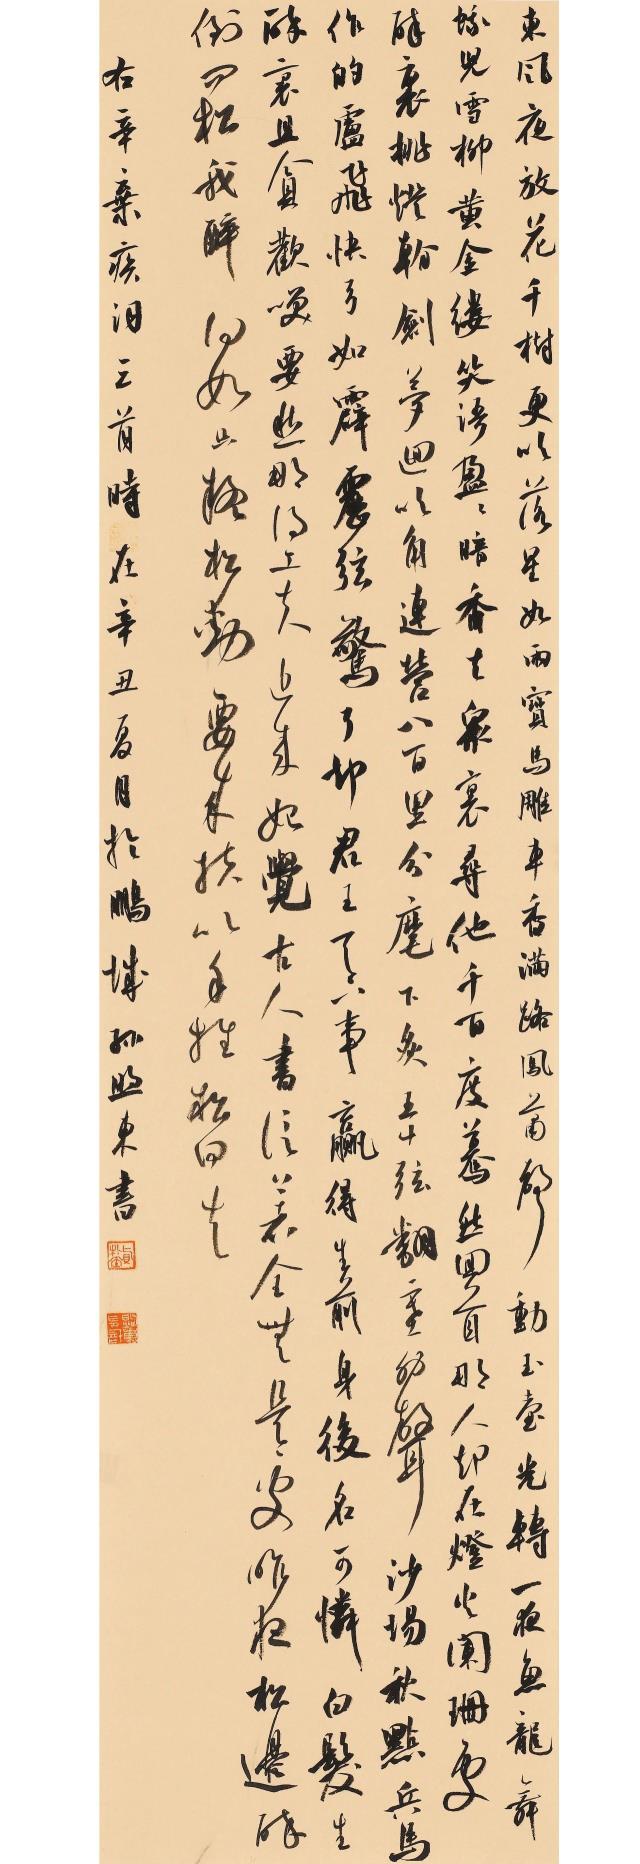 東風夜放花千樹更吹落星如雨寶馬雕車香滿路鳳簫聲動玉壺光轉一夜魚龍舞
蛾兒雪柳黃金縷笑語盈〻暗香去眾裏尋他千百度驀然回首那人卻在燈火闌珊處
醉裏挑燈看劍夢迴吹角連營八百里分麾下炙五十弦翻塞外聲沙場秋點兵馬
作的盧飛快弓如霹靂弦驚了卻君王天下事贏得生前身後名可憐白髮生
醉裏且貪歡笑要愁那得工夫近來始覺古人書信著全無是〻處昨夜松邊醉
倒問松我醉何如只疑松動要來扶以手推松曰去
右辛棄疾詞三首時在辛丑夏月於鵬城孫照東書